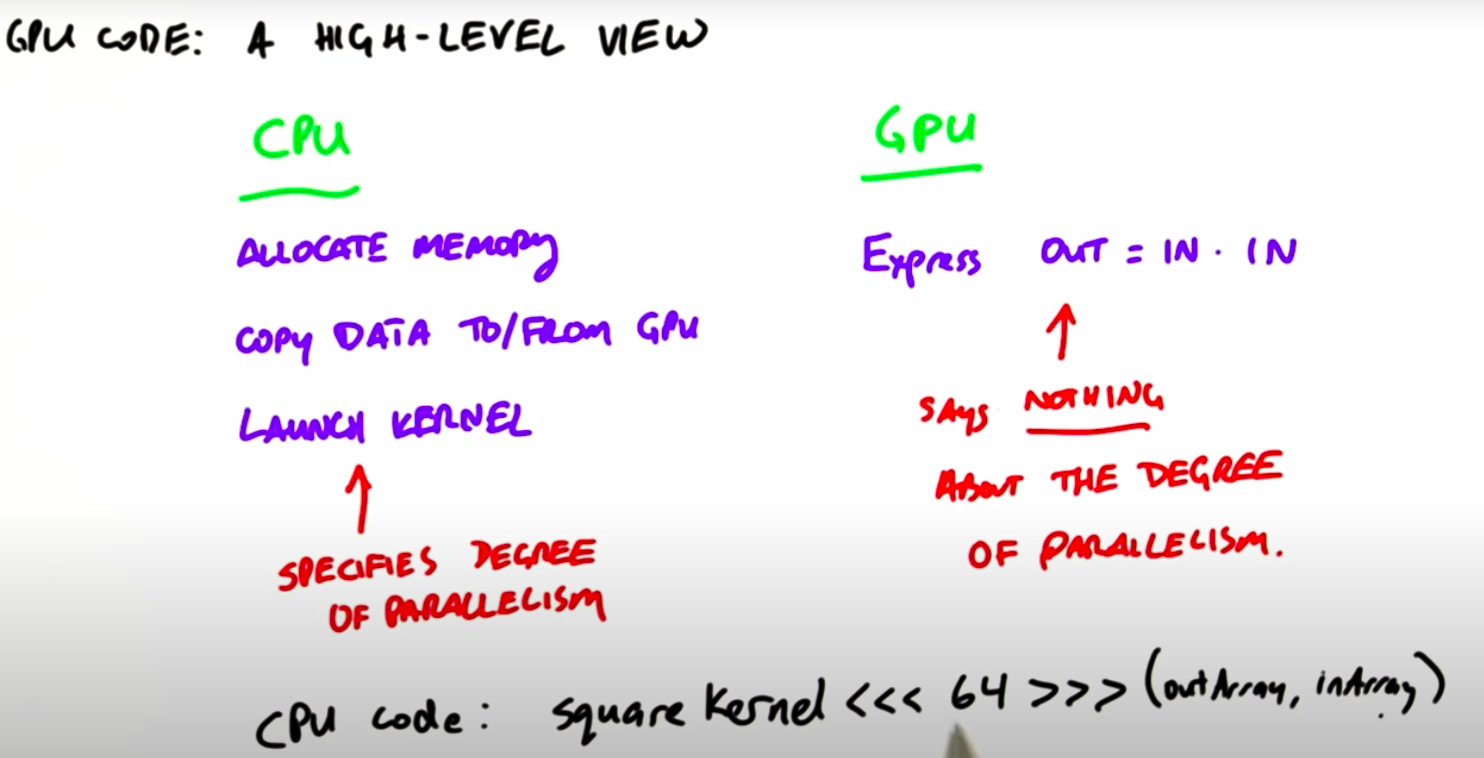 GPU CODE: A HIGH-LEVEL VIEW
CPU
GPU
ALLOCATE MEMORY
COPY DATA TO/FROM GPU
LAUNCH KERNEL
SPECIFIES DEGREE
OF PARALLELISM
Express OUT = IN · IN
SAYS NOTHING
ABOUT THE DEGREE
OF PARALLELISM.
CPU code: square Kernel <<< 64 >>> (outArray, inArray)